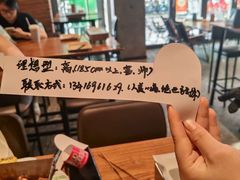 理想型：高(185cm以上,富,帅)
联系方式：13416961629.(人美心善绝世好母)